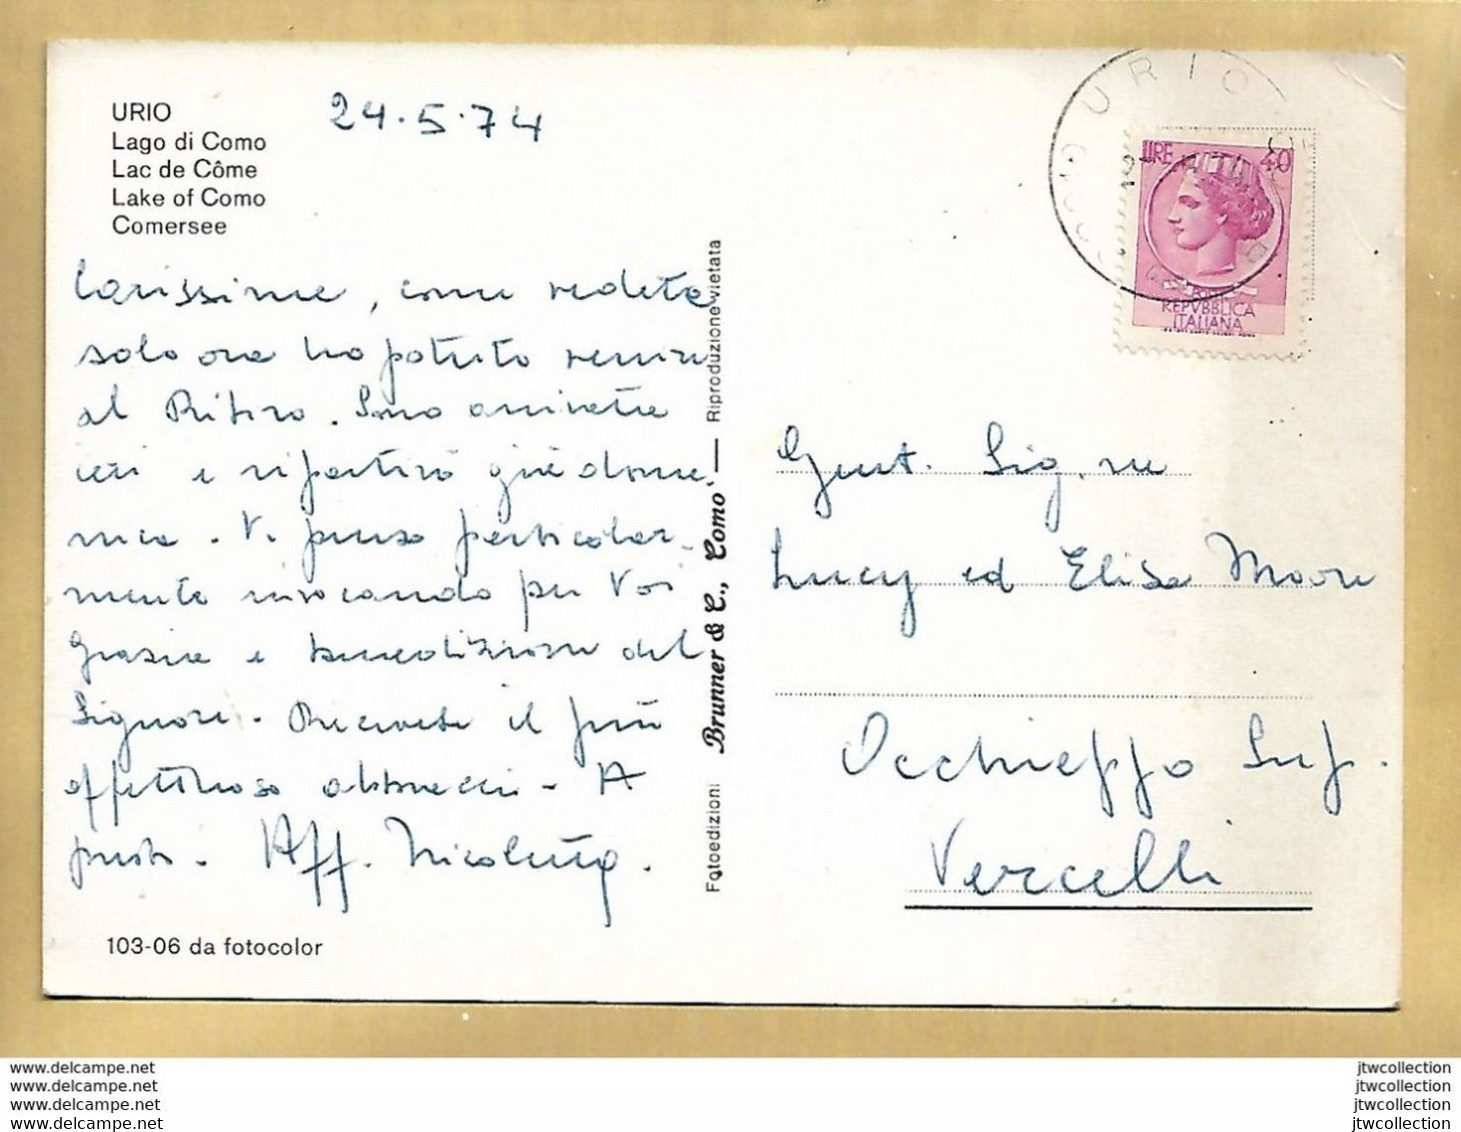 URIO
Lago di Como
Lac de Côme
Lake of Como
Comersee
24.5.74
Carissime, come vedete
solo ora ho potuto venire
al Ritiro. Sono arrivata
ieri e ripartirò già dome-
nica. Vi penso particolar-
mente invocando per Voi
Grazie e benedizione del
Signore. Ricevete il più
affettuoso abbraccio. A
presto. Aff.
103-06 da fotocolor
Fotoedizioni Brunner & C., Como — Riproduzione vietata
URIO
COMO
LIRE 40
REPVBBLICA
ITALIANA
Gent. Sig.ne
Lucy ed Elisa
Occhieppo Sup.
Vercelli
www.delcampe.net
www.delcampe.net
www.delcampe.net
www.delcampe.net
jtwcollection
jtwcollection
jtwcollection
jtwcollection